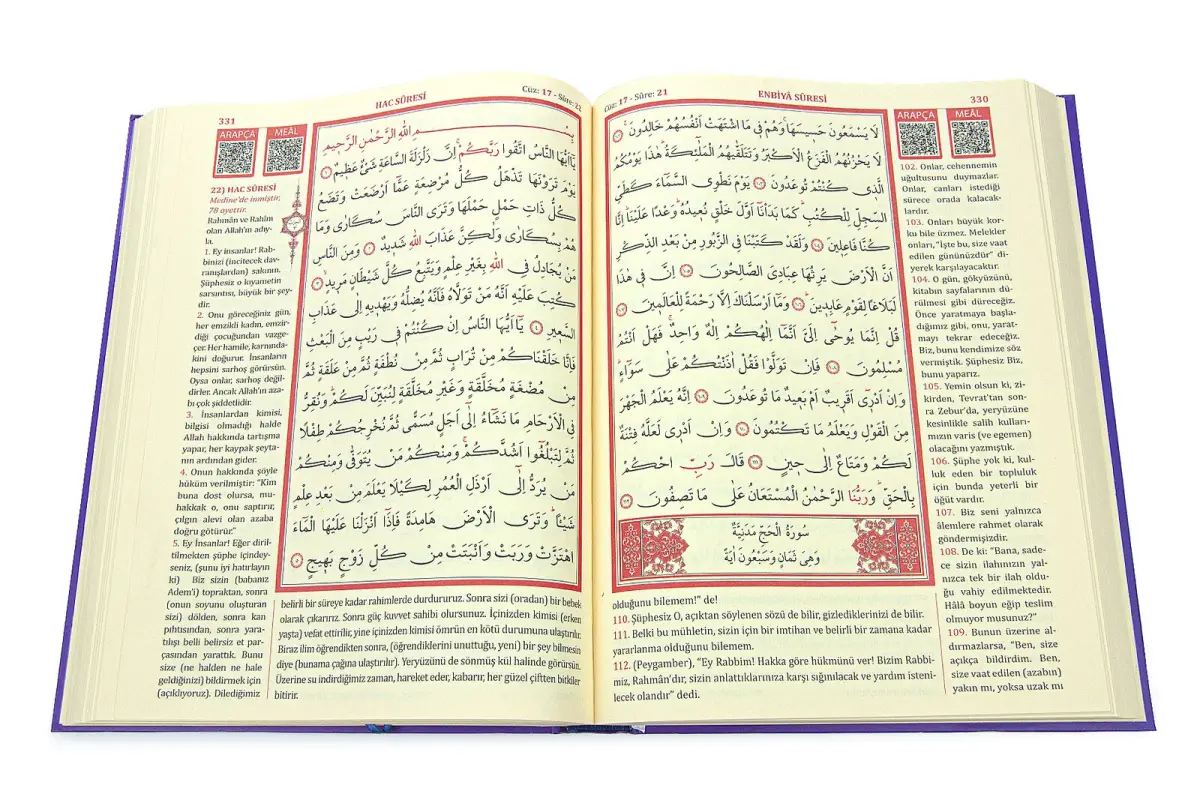 330
ENBİYÂ SÛRESİ
Cüz: 17 - Sûre: 21
ARAPÇA
MEÂL
لَا يَسْمَعُونَ حَسِيسَهَا وَهُمْ فِى مَا اشْتَهَتْ اَنْفُسُهُمْ خَالِدُونَ
لَا يَحْزُنُهُمُ الْفَزَعُ الْاَكْبَرُ وَتَتَلَقّٰيهُمُ الْمَلٰٓئِكَةُ هٰذَا يَوْمُكُمُ
الَّذِى كُنْتُمْ تُوعَدُونَ يَوْمَ نَطْوِى السَّمَٓاءَ كَطَىِّ
السِّجِلِّ لِلْكُتُبِ كَمَا بَدَاْنَٓا اَوَّلَ خَلْقٍ نُعِيدُهُ وَعْدًا عَلَيْنَا اِنَّا
كُنَّا فَاعِلِينَ وَلَقَدْ كَتَبْنَا فِى الزَّبُورِ مِنْ بَعْدِ الذِّكْرِ
اَنَّ الْاَرْضَ يَرِثُهَا عِبَادِىَ الصَّالِحُونَ اِنَّ فِى هٰذَا
لَبَلَاغًا لِقَوْمٍ عَابِدِينَ وَمَٓا اَرْسَلْنَاكَ اِلَّا رَحْمَةً لِلْعَالَمِينَ
قُلْ اِنَّمَا يُوحٰٓى اِلَىَّ اَنَّمَٓا اِلٰهُكُمْ اِلٰهٌ وَاحِدٌ فَهَلْ اَنْتُمْ
مُسْلِمُونَ فَاِنْ تَوَلَّوْا فَقُلْ اٰذَنْتُكُمْ عَلٰى سَوَٓاءٍ
وَاِنْ اَدْرِٓى اَقَرِيبٌ اَمْ بَعِيدٌ مَا تُوعَدُونَ اِنَّهُ يَعْلَمُ الْجَهْرَ
مِنَ الْقَوْلِ وَيَعْلَمُ مَا تَكْتُمُونَ وَاِنْ اَدْرِى لَعَلَّهُ فِتْنَةٌ
لَكُمْ وَمَتَاعٌ اِلٰى حِينٍ قَالَ رَبِّ احْكُمْ
بِالْحَقِّ وَرَبُّنَا الرَّحْمٰنُ الْمُسْتَعَانُ عَلٰى مَا تَصِفُونَ
سُورَةُ الْحَجِّ مَدَنِيَّةٌ
وَهِىَ ثَمَانٍ وَسَبْعُونَ اٰيَةً
102. Onlar, cehennemin
uğultusunu duymazlar.
Onlar, canları istediği
sürece orada kalacak-
lardır.
103. Onları büyük kor-
ku bile üzmez. Melekler
onları, "İşte bu, size vaat
edilen gününüzdür" di-
yerek karşılayacaktır.
104. O gün, gökyüzünü,
kitabın sayfalarının dü-
rülmesi gibi düreceğiz.
Önce yaratmaya başla-
dığımız gibi, onu, yarat-
mayı tekrar edeceğiz.
Biz, bunu kendimize söz
vermiştik. Şüphesiz Biz,
bunu yaparız.
105. Yemin olsun ki, zi-
kirden, Tevrat'tan son-
ra Zebur'da, yeryüzüne
kesinlikle salih kulları-
mızın varis (ve egemen)
olacağını yazmıştık.
106. Şüphe yok ki, kul-
luk eden bir topluluk
için bunda yeterli bir
öğüt vardır.
107. Biz seni yalnızca
âlemlere rahmet olarak
göndermişizdir.
108. De ki: "Bana, sade-
ce sizin ilahınızın yal-
nızca tek bir ilah oldu-
ğu vahiy edilmektedir.
Hâlâ boyun eğip teslim
olmuyor musunuz?"
109. Bunun üzerine al-
dırmazlarsa, "Ben, size
açıkça bildirdim. Ben,
size vaat edilen (azabın)
yakın mı, yoksa uzak mı
olduğunu bilemem!" de!
110. Şüphesiz O, açıktan söylenen sözü de bilir, gizlediklerinizi de bilir.
111. Belki bu mühletin, sizin için bir imtihan ve belirli bir zamana kadar
yararlanma olduğunu bilemem.
112. (Peygamber), "Ey Rabbim! Hakka göre hükmünü ver! Bizim Rabbi-
miz, Rahmân'dır, sizin anlattıklarınıza karşı sığınılacak ve yardım isteni-
lecek olandır" dedi.
331
HAC SÛRESİ
Cüz: 17 - Sûre: 22
ARAPÇA
MEÂL
بِسْمِ اللّٰهِ الرَّحْمٰنِ الرَّحِيمِ
يَٓا اَيُّهَا النَّاسُ اتَّقُوا رَبَّكُمْ اِنَّ زَلْزَلَةَ السَّاعَةِ شَىْءٌ عَظِيمٌ
يَوْمَ تَرَوْنَهَا تَذْهَلُ كُلُّ مُرْضِعَةٍ عَمَّٓا اَرْضَعَتْ وَتَضَعُ
كُلُّ ذَاتِ حَمْلٍ حَمْلَهَا وَتَرَى النَّاسَ سُكَارٰى وَمَا
هُمْ بِسُكَارٰى وَلٰكِنَّ عَذَابَ اللّٰهِ شَدِيدٌ وَمِنَ النَّاسِ
مَنْ يُجَادِلُ فِى اللّٰهِ بِغَيْرِ عِلْمٍ وَيَتَّبِعُ كُلَّ شَيْطَانٍ مَرِيدٍ
كُتِبَ عَلَيْهِ اَنَّهُ مَنْ تَوَلَّاهُ فَاَنَّهُ يُضِلُّهُ وَيَهْدِيهِ اِلٰى عَذَابِ
السَّعِيرِ يَٓا اَيُّهَا النَّاسُ اِنْ كُنْتُمْ فِى رَيْبٍ مِنَ الْبَعْثِ
فَاِنَّا خَلَقْنَاكُمْ مِنْ تُرَابٍ ثُمَّ مِنْ نُطْفَةٍ ثُمَّ مِنْ عَلَقَةٍ ثُمَّ
مِنْ مُضْغَةٍ مُخَلَّقَةٍ وَغَيْرِ مُخَلَّقَةٍ لِنُبَيِّنَ لَكُمْ وَنُقِرُّ
فِى الْاَرْحَامِ مَا نَشَٓاءُ اِلٰٓى اَجَلٍ مُسَمًّى ثُمَّ نُخْرِجُكُمْ طِفْلًا
ثُمَّ لِتَبْلُغُٓوا اَشُدَّكُمْ وَمِنْكُمْ مَنْ يُتَوَفّٰى وَمِنْكُمْ
مَنْ يُرَدُّ اِلٰٓى اَرْذَلِ الْعُمُرِ لِكَيْلَا يَعْلَمَ مِنْ بَعْدِ عِلْمٍ
شَيْـًٔا وَتَرَى الْاَرْضَ هَامِدَةً فَاِذَٓا اَنْزَلْنَا عَلَيْهَا الْمَٓاءَ
اهْتَزَّتْ وَرَبَتْ وَاَنْبَتَتْ مِنْ كُلِّ زَوْجٍ بَهِيجٍ
22) HAC SÛRESİ
Medine'de inmiştir,
78 ayettir.
Rahmân ve Rahîm
olan Allah'ın adıy-
la.
1. Ey insanlar! Rab-
binizi (incitecek dav-
ranışlardan) sakının.
Şüphesiz o kıyametin
sarsıntısı, büyük bir şey-
dir.
2. Onu göreceğiniz gün,
her emzikli kadın, emzir-
diği çocuğundan vazge-
çer. Her hamile, karnında-
kini doğurur. İnsanların
hepsini sarhoş görürsün.
Oysa onlar, sarhoş değil-
dirler. Ancak Allah'ın aza-
bı çok şiddetlidir.
3. İnsanlardan kimisi,
bilgisi olmadığı halde
Allah hakkında tartışma
yapar, her kaypak şeyta-
nın ardından gider.
4. Onun hakkında şöyle
hüküm verilmiştir: "Kim
buna dost olursa, mu-
hakkak o, onu saptırır,
çılgın alevi olan azaba
doğru götürür."
5. Ey İnsanlar! Eğer diril-
tilmekten şüphe içindey-
seniz, (şunu iyi hatırlayın
ki) Biz sizin (babanız
Adem'i) topraktan, sonra
(onun soyunu oluşturan
sizi) dölden, sonra kan
pıhtısından, sonra yara-
tılışı belli belirsiz et par-
çasından yarattık. Bunu
size (ne halden ne hale
geldiğinizi) bildirmek için
(açıklıyoruz). Dilediğimiz
belirli bir süreye kadar rahimlerde durdururuz. Sonra sizi (oradan) bir bebek
olarak çıkarırız. Sonra güç kuvvet sahibi olursunuz. İçinizden kimisi (erken
yaşta) vefat ettirilir, yine içinizden kimisi ömrün en kötü durumuna ulaştırılır.
Biraz ilim öğrendikten sonra, (öğrendiklerini unuttuğu, yeni) bir şey bilmesin
diye (bunama çağına ulaştırılır). Yeryüzünü de sönmüş kül halinde görürsün.
Üzerine su indirdiğimiz zaman, hareket eder, kabarır, her güzel çiftten bitkiler
bitirir.